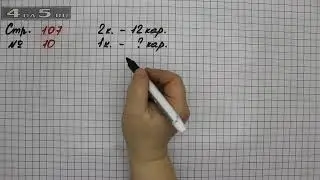 4 на 5.ru
Стр. 107 2к. - 12 кар.
№ 10 1к. - ? кар.